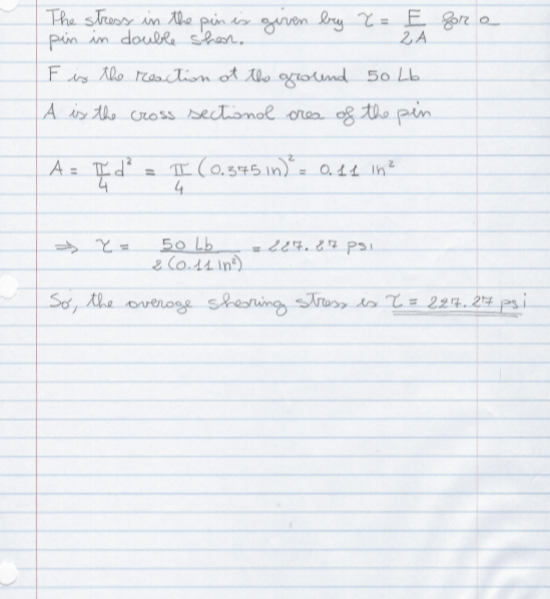 The stress in the pin is given by τ = F/2A for a
pin in double shear.
F is the reaction at the ground 50 Lb
A is the cross sectional area of the pin
A = π/4 d² = π/4 (0.375 in)² = 0.11 in²
⇒ τ = 50 Lb / 2(0.11 in²) = 227.27 psi
So, the average shearing stress is τ = 227.27 psi